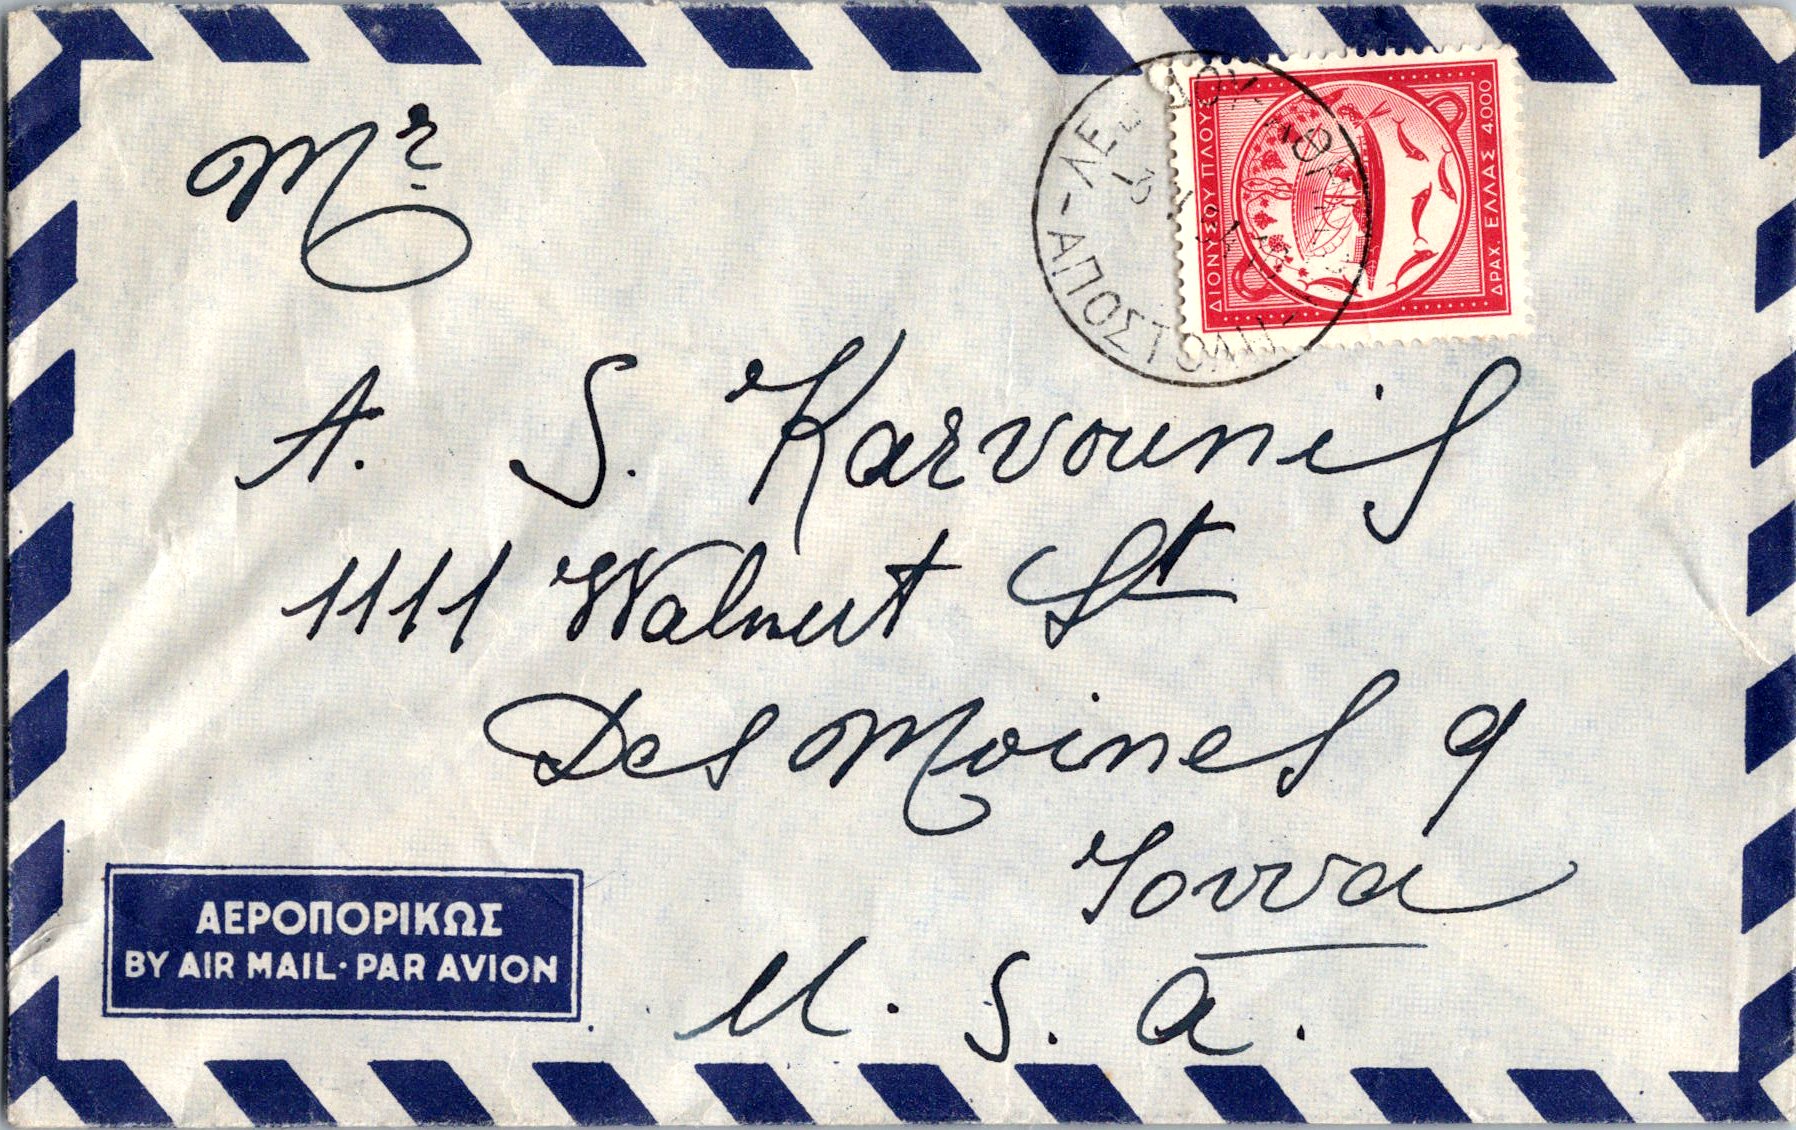 Mr
A. S. Karvounis
1111 Walnut St
Des Moines 9
Iowa
U. S. A.
ΔΙΟΝΥΣΟΥ ΠΛΟΥΣ
ΔΡΑΧ. ΕΛΛΑΣ 4.000
ΑΕΡΟΠΟΡΙΚΩΣ
BY AIR MAIL·PAR AVION